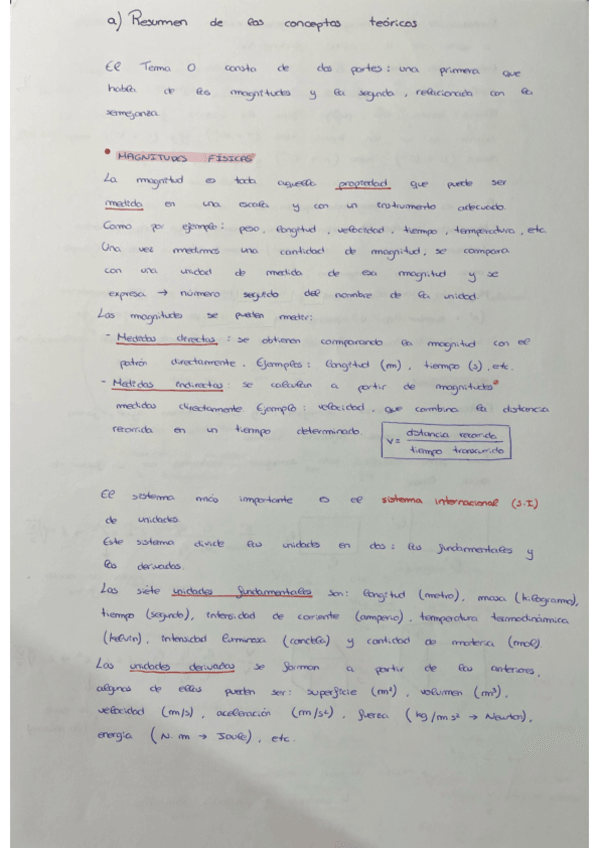 a) Resumen de los conceptos teóricos
El Tema 0 consta de dos partes: una primera que
habla de las magnitudes y la segunda, relacionada con la
semejanza.
• MAGNITUDES FÍSICAS
La magnitud es toda aquella propiedad que puede ser
medida en una escala y con un instrumento adecuado.
Como por ejemplo: peso, longitud, velocidad, tiempo, temperatura, etc.
Una vez medimos una cantidad de magnitud, se compara
con una unidad de medida de esa magnitud y se
expresa → número seguido del nombre de la unidad.
Las magnitudes se pueden medir:
- Medidas directas: se obtienen comparando la magnitud con el
patrón directamente. Ejemplos: longitud (m), tiempo (s), etc.
- Medidas indirectas: se calculan a partir de magnitudes
medidas directamente. Ejemplo: velocidad, que combina la distancia
recorrida en un tiempo determinado. v = distancia recorrida / tiempo transcurrido
El sistema más importante es el sistema internacional (S.I)
de unidades.
Este sistema divide las unidades en dos: las fundamentales y
las derivadas.
Las siete unidades fundamentales son: longitud (metro), masa (kilogramo),
tiempo (segundo), intensidad de corriente (amperio), temperatura termodinámica
(kelvin), intensidad luminosa (candela) y cantidad de materia (mol).
Las unidades derivadas se forman a partir de las anteriores,
algunas de ellas pueden ser: superficie (m²), volumen (m³),
velocidad (m/s), aceleración (m/s²), fuerza (kg/m s² → Newton),
energía (N·m → Joule), etc.